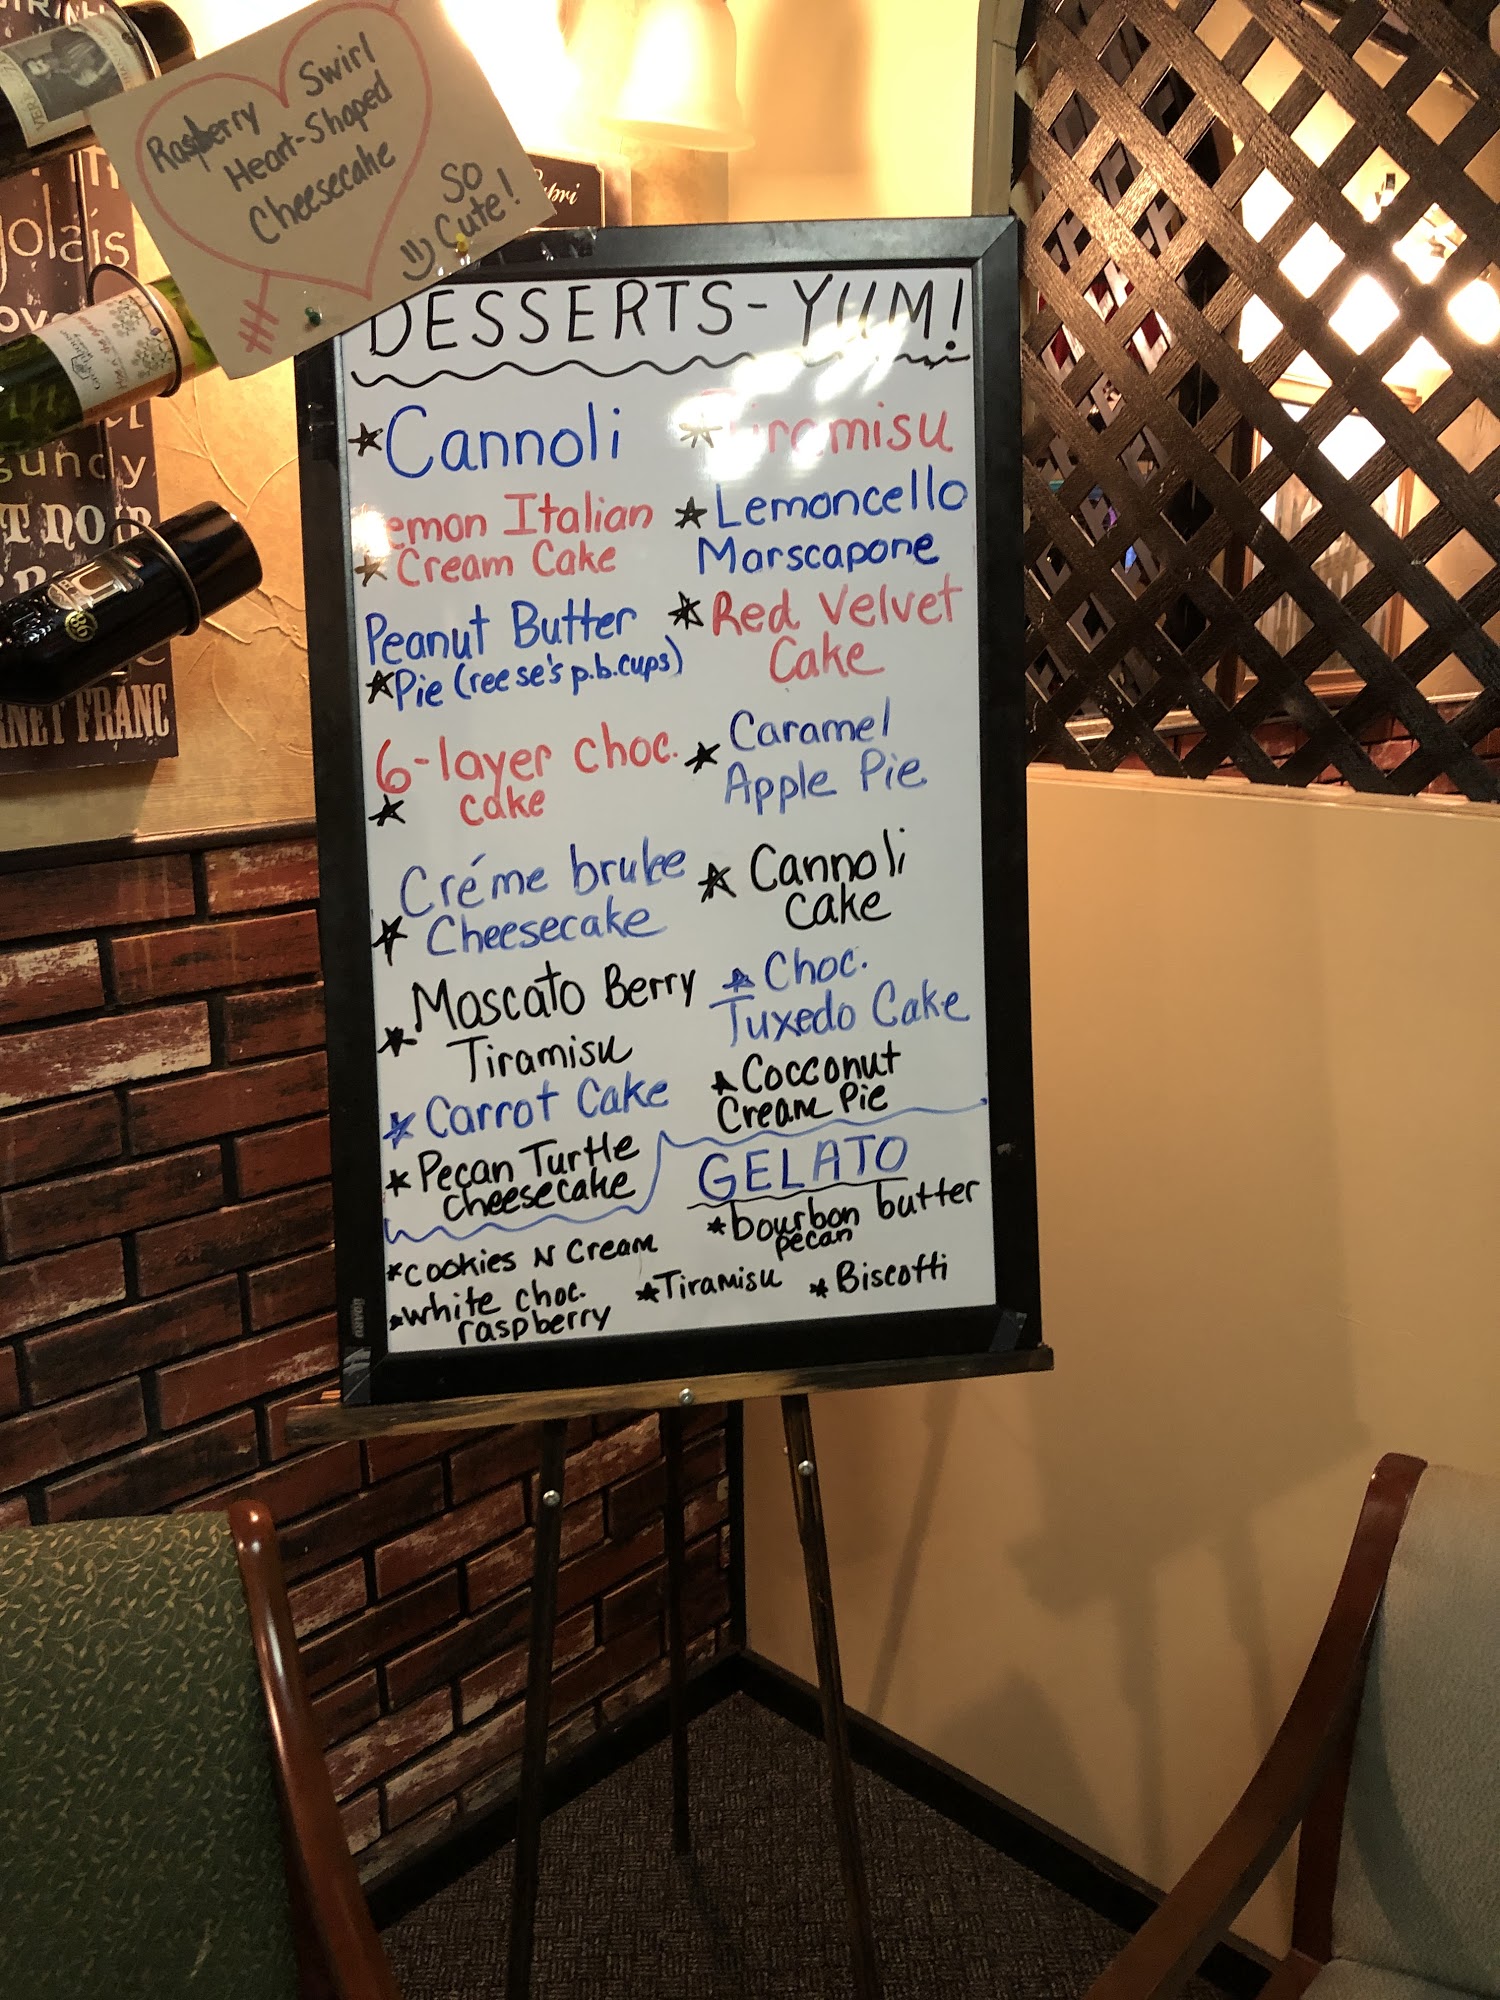 Raspberry Swirl
Heart-Shaped
Cheesecake
So
Cute!
DESSERTS- YUM!
Cannoli
Tiramisu
Lemon Italian
Cream Cake
Lemoncello
Marscapone
Peanut Butter
Pie (reese's p.b. cups)
Red Velvet
Cake
6-layer choc.
cake
Caramel
Apple Pie
Créme brulee
Cheesecake
Cannoli
cake
Moscato Berry
Tiramisu
Choc.
Tuxedo Cake
Carrot Cake
Cocconut
Cream Pie
Pecan Turtle
cheesecake
GELATO
bourbon butter
pecan
cookies N Cream
white choc.
raspberry
Tiramisu
Biscotti
olais
undy
T NOIR
RNET FRANC
86